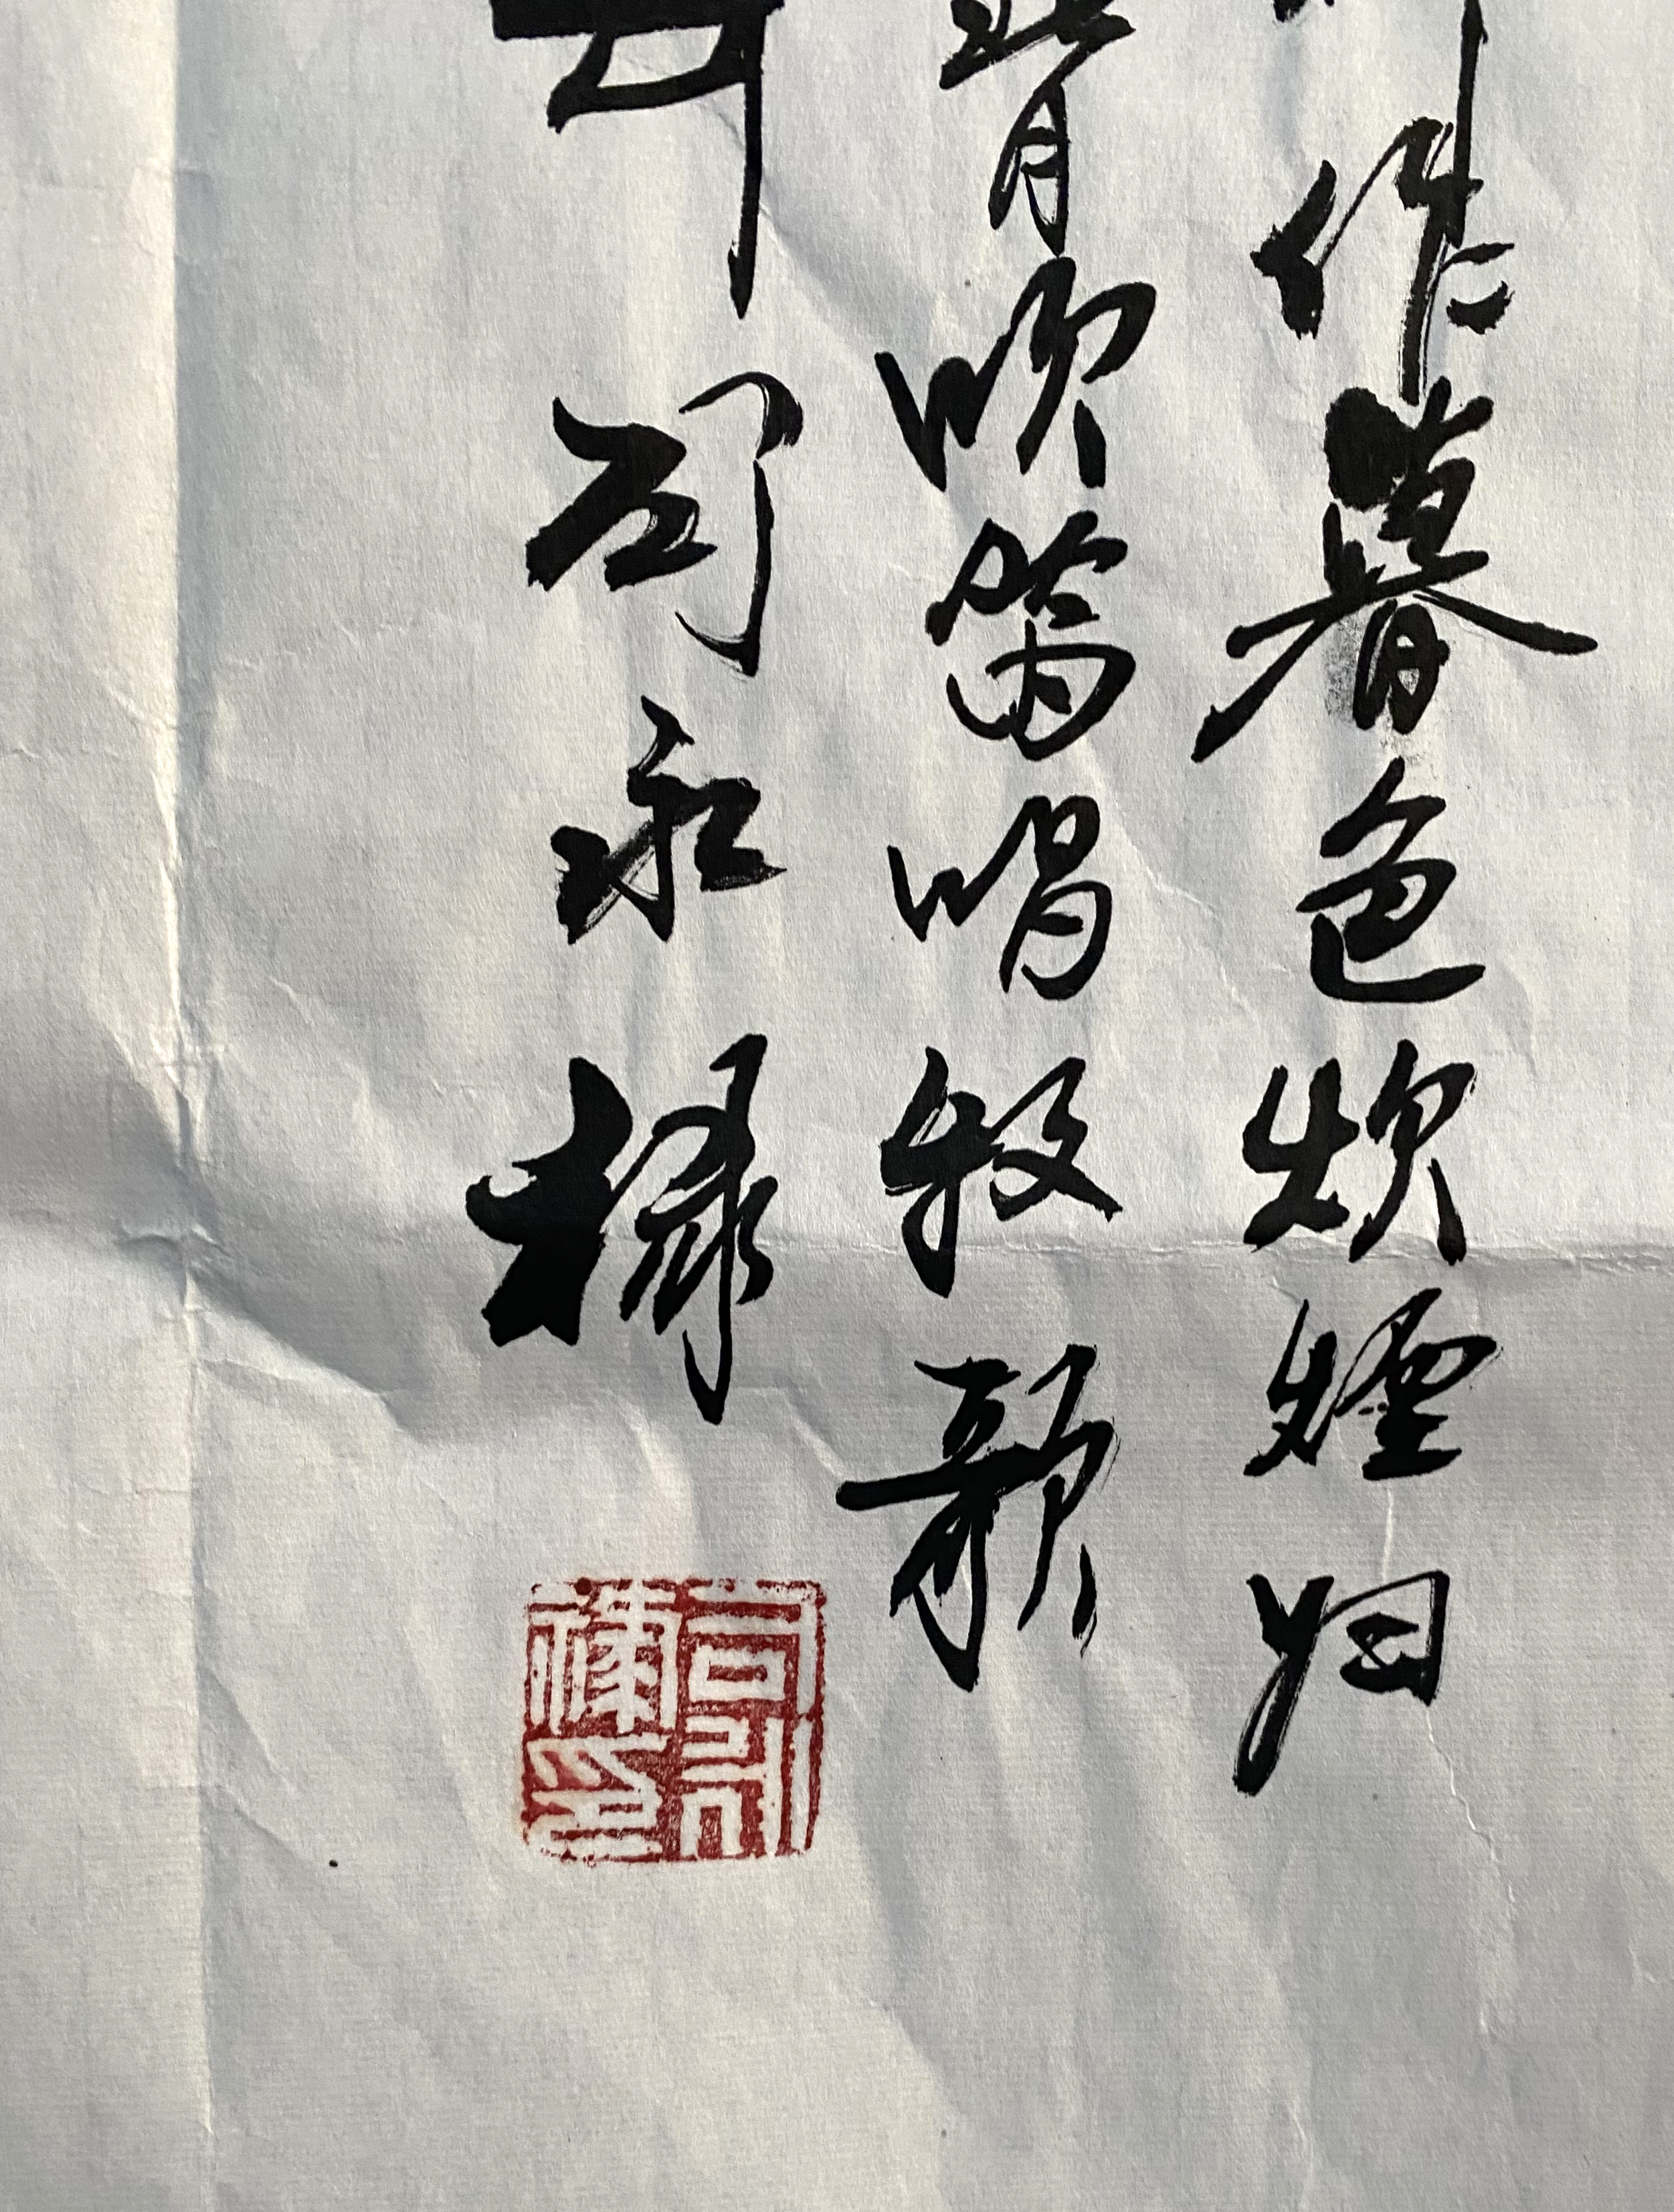 作暮色炊煙归
背吹笛唱牧歌
司永
司永
印